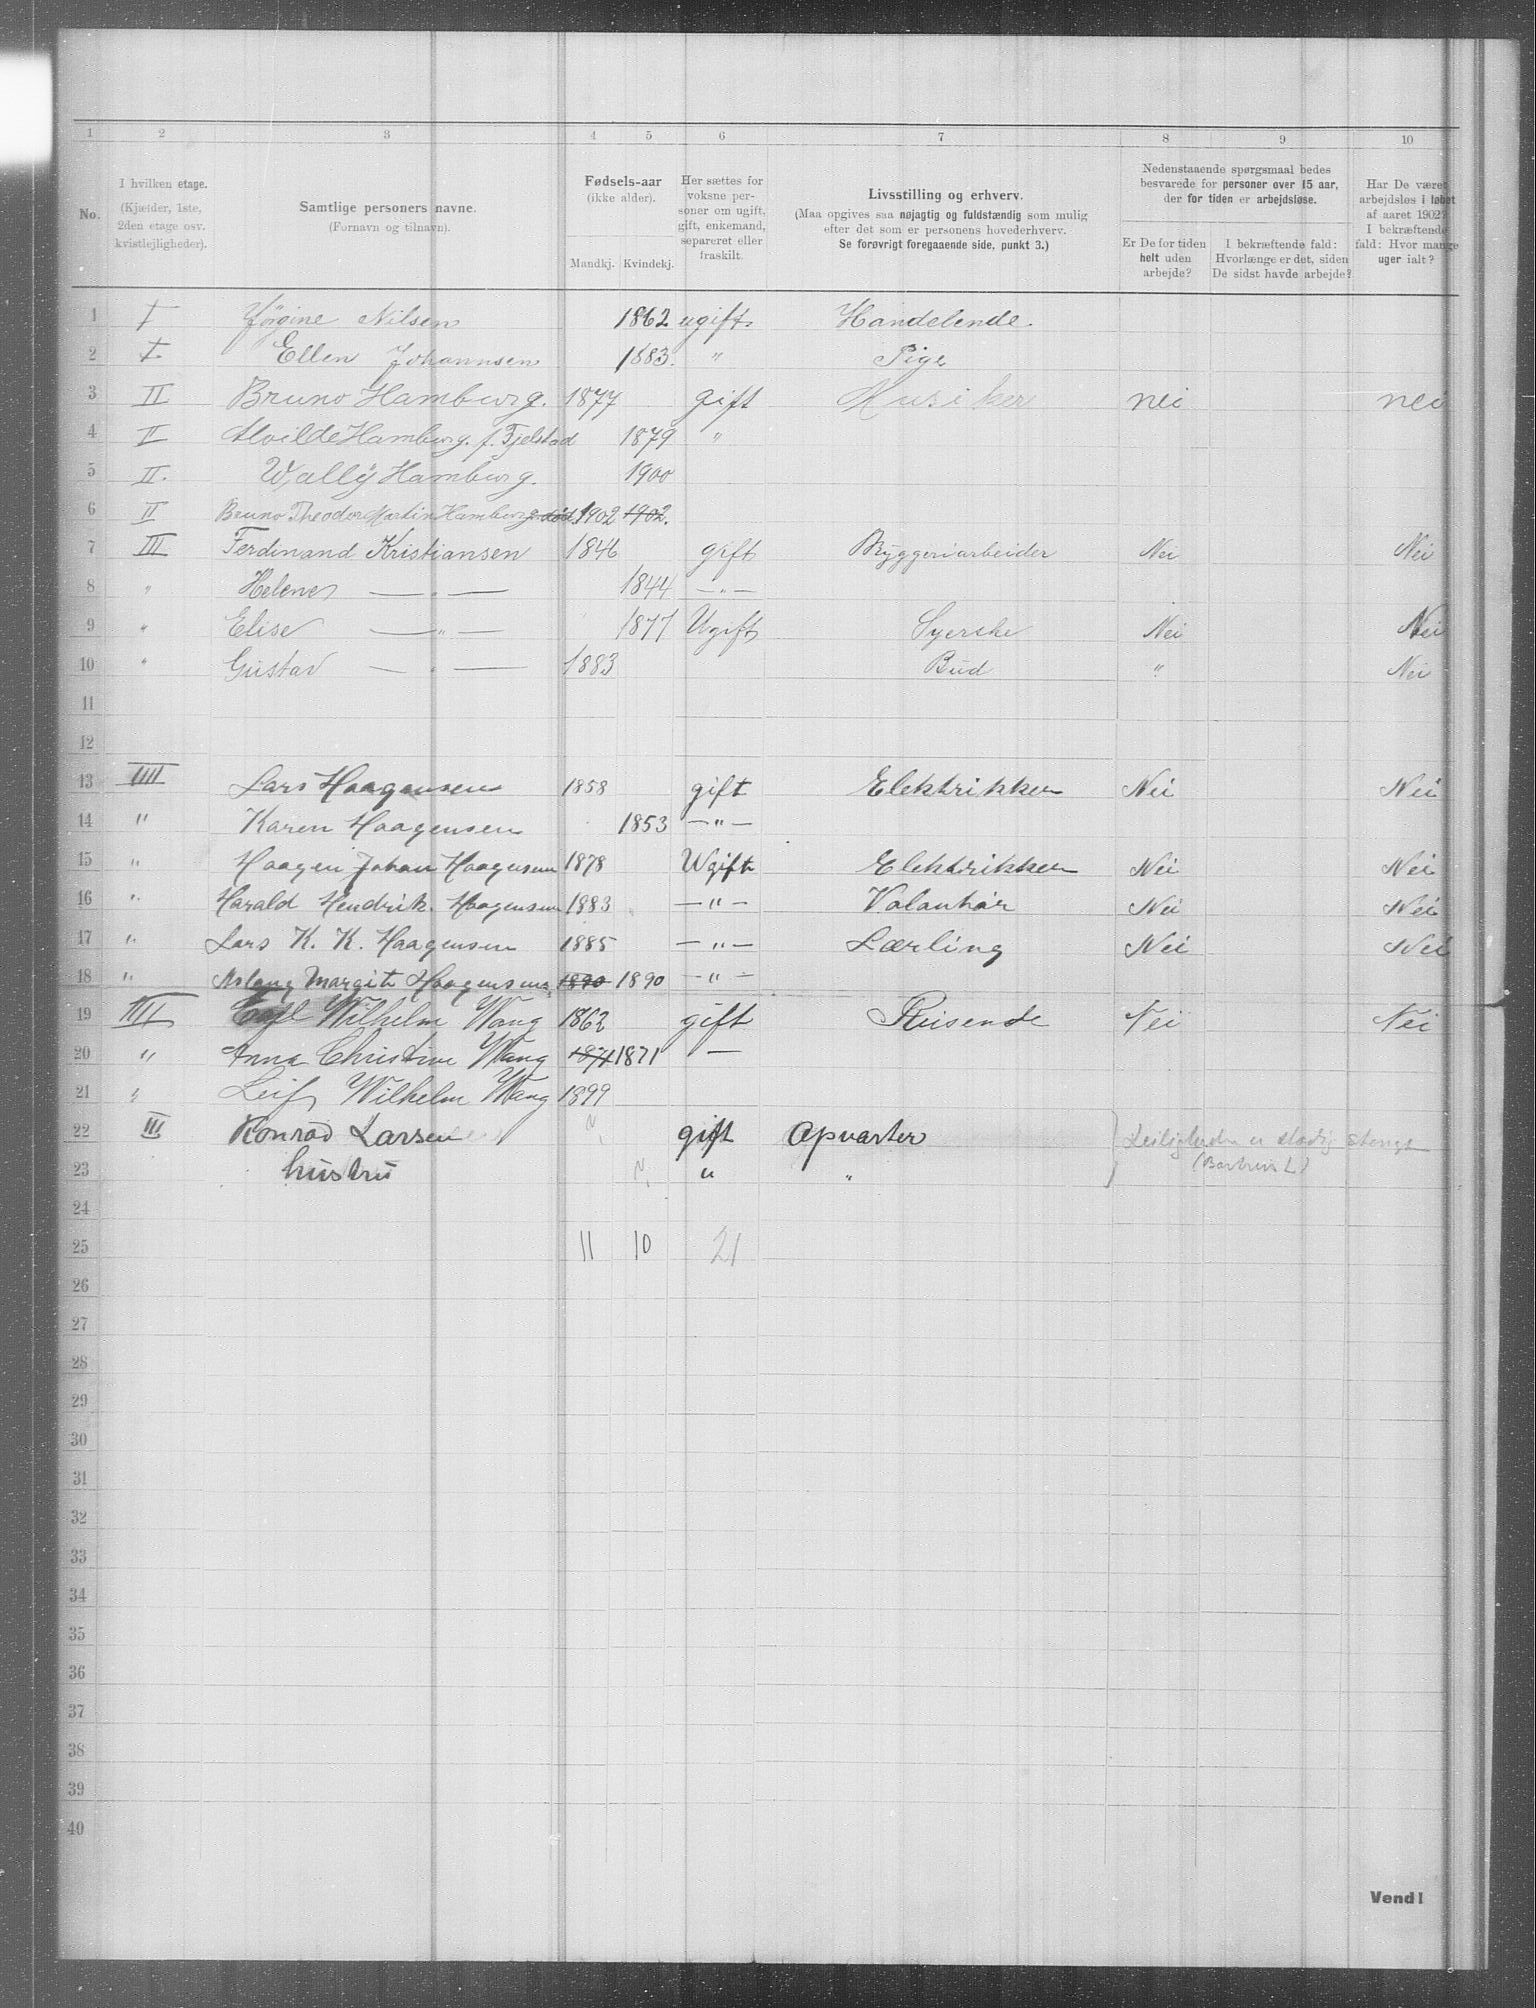 1 2 3 4 5 6 7 8 9 10
No.
I hvilken etage.
(Kjælder, 1ste,
2den etage osv.
kvistlejligheder).
Samtlige personers navne.
(Fornavn og tilnavn).
Fødsels-aar
(ikke alder).
Mandkj. Kvindekj.
Her sættes for
voksne per-
soner om ugift,
gift, enkemand,
separeret eller
fraskilt.
Livsstilling og erhverv.
(Maa opgives saa nøjagtig og fuldstændig som mulig
efter det som er personens hovederhverv.
Se forøvrigt foregaaende side, punkt 3.)
Nedenstaaende spørgsmaal bedes
besvarede for personer over 15 aar,
der for tiden er arbejdsløse.
Er De for tiden
helt uden
arbejde?
I bekræftende fald:
Hvorlænge er det, siden
De sidst havde arbejde?
Har De været
arbejdsløs i løbet
af aaret 1902?
I bekræftende
fald: Hvor mange
uger ialt?
1 I Jørgine Nilsen 1862 ugift. Handelende.
2 I Ellen Johannsen 1883. " Pige
3 II Bruno Hamburg. 1877 gift Musiker nei nei
4 II Alvilde Hamburg. f. Fjelstad 1879 "
5 II. Wally Hamburg. 1900
6 II Bruno Theodor Martin Hamburg død. 1902 1902.
7 III Ferdinand Kristiansen 1846 gift Bryggeriarbeider Nei Nei
8 " Helene — " — 1844 — " —
9 " Elise — " — 1877 Ugift Syerske Nei Nei
10 " Gustav — " — 1883 Bud " Nei
11
12
13 IIII Lars Haagensen 1858 gift Elektrikker Nei Nei
14 " Karen Haagensen 1853 — " —
15 " Haagen Johan Haagensen 1878 Ugift Elektrikker Nei Nei
16 " Harald Hendrik. Haagensen 1883 — " — Volontør Nei Nei
17 " Lars K. K. Haagensen 1885 — " — Lærling Nei Nei
18 " Aslaug Margit Haagensen 1890 1890 — " —
19 IIII Wilhelm Wang 1862 gift Reisende Nei Nei
20 " Anna Christine Wang 1871 1871 —
21 " Leif Wilhelm Wang 1899
22 III Konrad Larsen gift Opvarter Leiligheden er stadig stengt
23 hustru " "
24
25 11 10 21
26
27
28
29
30
31
32
33
34
35
36
37
38
39
40
Vend!